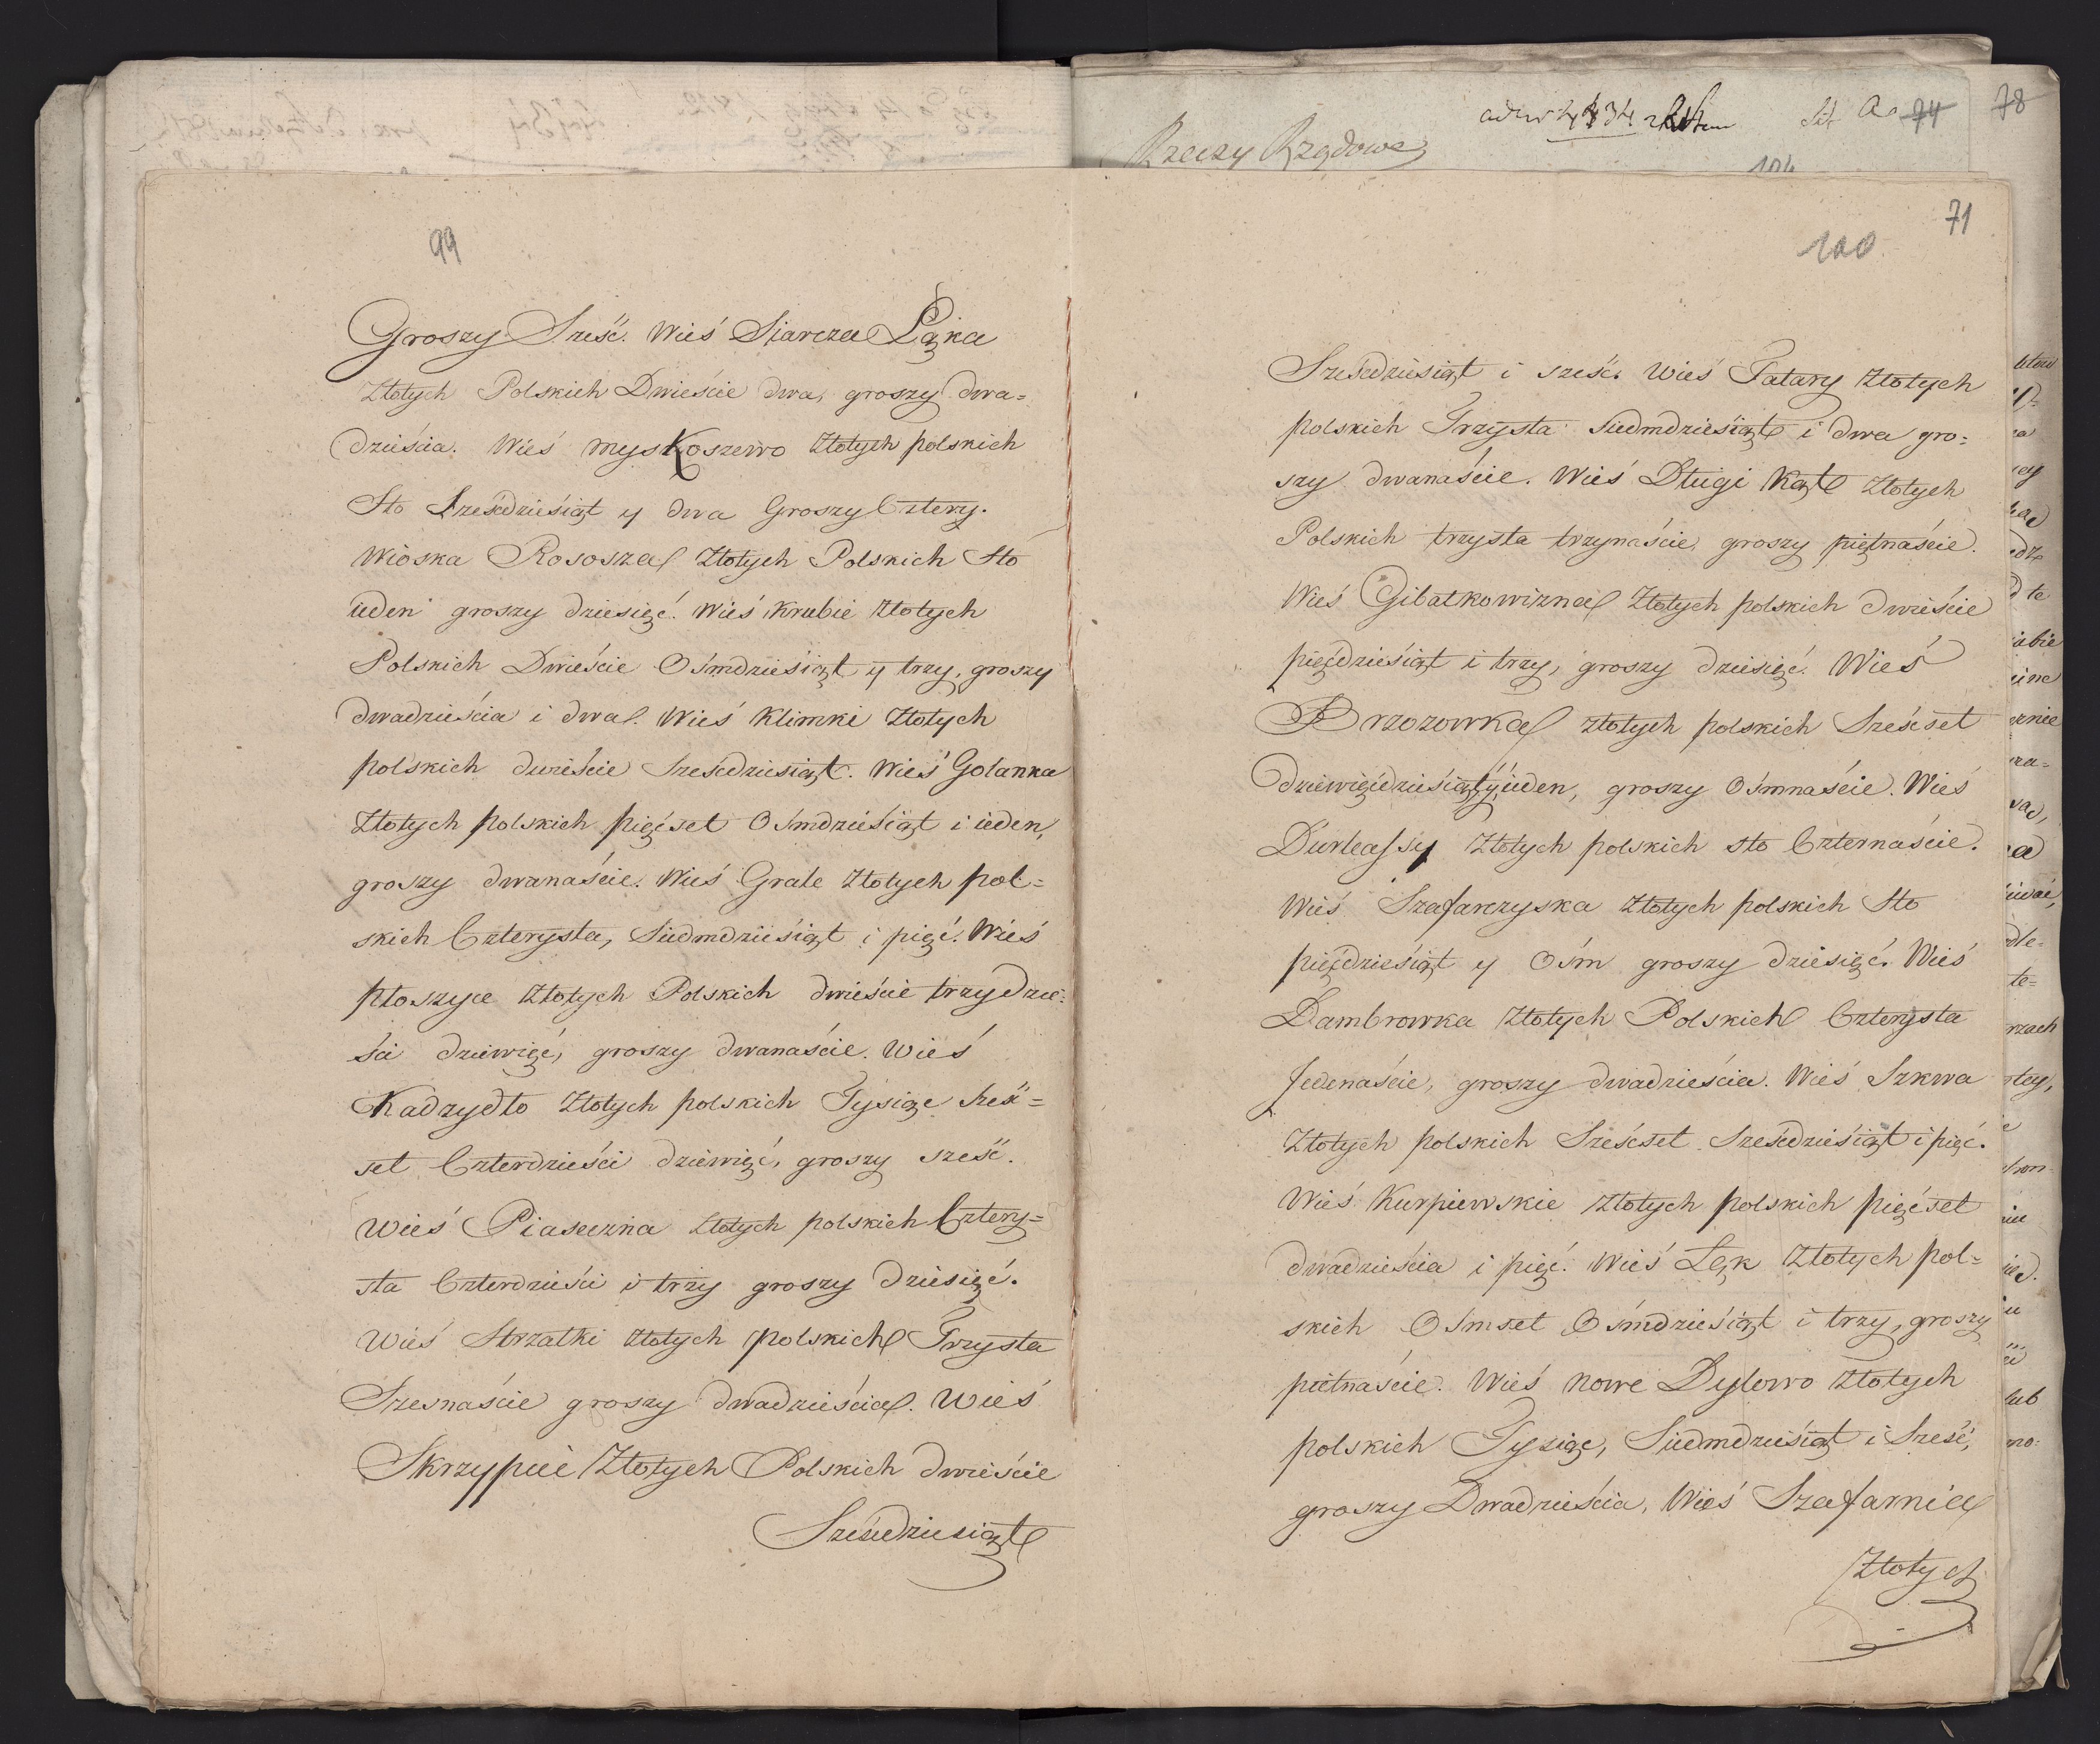 99
Groszy Sześć. Wieś Siarcza Łąka
Złotych Polskich Dwieście dwa, groszy dwa=
dzieścia. Wieś MysKoszewo Złotych polskich
Sto Sześćdziesiąt y dwa Groszy Cztery.
Wioska Rososza Złotych Polskich Sto
ieden groszy dziesięć. Wieś Krubie Złotych
Polskich Dwieście Ośmdziesiąt y trzy, groszy
dwadzieścia i dwa. Wieś Klimki Złotych
polskich dwieście Sześćdziesiąt. Wieś Golanka
Złotych polskich pięćset Ośmdziesiąt i ieden,
groszy dwanaście. Wieś Grale Złotych pol=
skich Czterysta, Siedmdziesiąt i pięć. Wieś
Płoszyce Złotych Polskich dwieście trzydzie=
ści dziewięć, groszy dwanaście. Wieś
Kadzydło Złotych polskich Tysiąc Sześć=
set Czterdzieści dziewięć, groszy sześć.
Wieś Piaseczna Złotych polskich Cztery=
sta Czterdzieści i trzy groszy dziesięć.
Wieś Strzałki Złotych polskich Trzysta
Szesnaście groszy dwadzieścia. Wieś
Skrzypie Złotych Polskich dwieście
Sześćdziesiąt
Rzeczy Rządowe
Lit Aa 74
78
104
71
100
Sześćdziesiąt i sześć. Wieś Tatary Złotych
polskich Trzysta Siedmdziesiąt i dwa gro=
szy dwanaście. Wieś Długi Kąt Złotych
Polskich trzysta trzynaście, groszy piętnaście.
Wieś Gibałkowizna Złotych polskich dwieście
pięćdziesiąt i trzy, groszy dziesięć. Wieś
Brzozowka złotych polskich Sześćset
dziewięćdziesiąt y ieden, groszy Ośmnaście. Wieś
Durlassy Złotych polskich sto Czternaście.
Wieś Szafarczyska Złotych polskich Sto
pięćdziesiąt y Ośm groszy dziesięć. Wieś
Dambrowka Złotych Polskich Czterysta
Jedenaście, groszy dwadzieścia. Wieś Szkwa
Złotych polskich Sześćset Sześćdziesiąt i pięć.
Wieś Kurpiewskie Złotych polskich pięćset
dwadzieścia i pięć. Wieś Lęk Złotych pol=
skich Ośmset Ośmdziesiąt i trzy, groszy
pietnaście. Wieś nowe Dylowo Złotych
polskich Tysiąc, Siedmdziesiąt i Sześć,
groszy Dwadzieścia, Wieś Szafarnia
Złotych